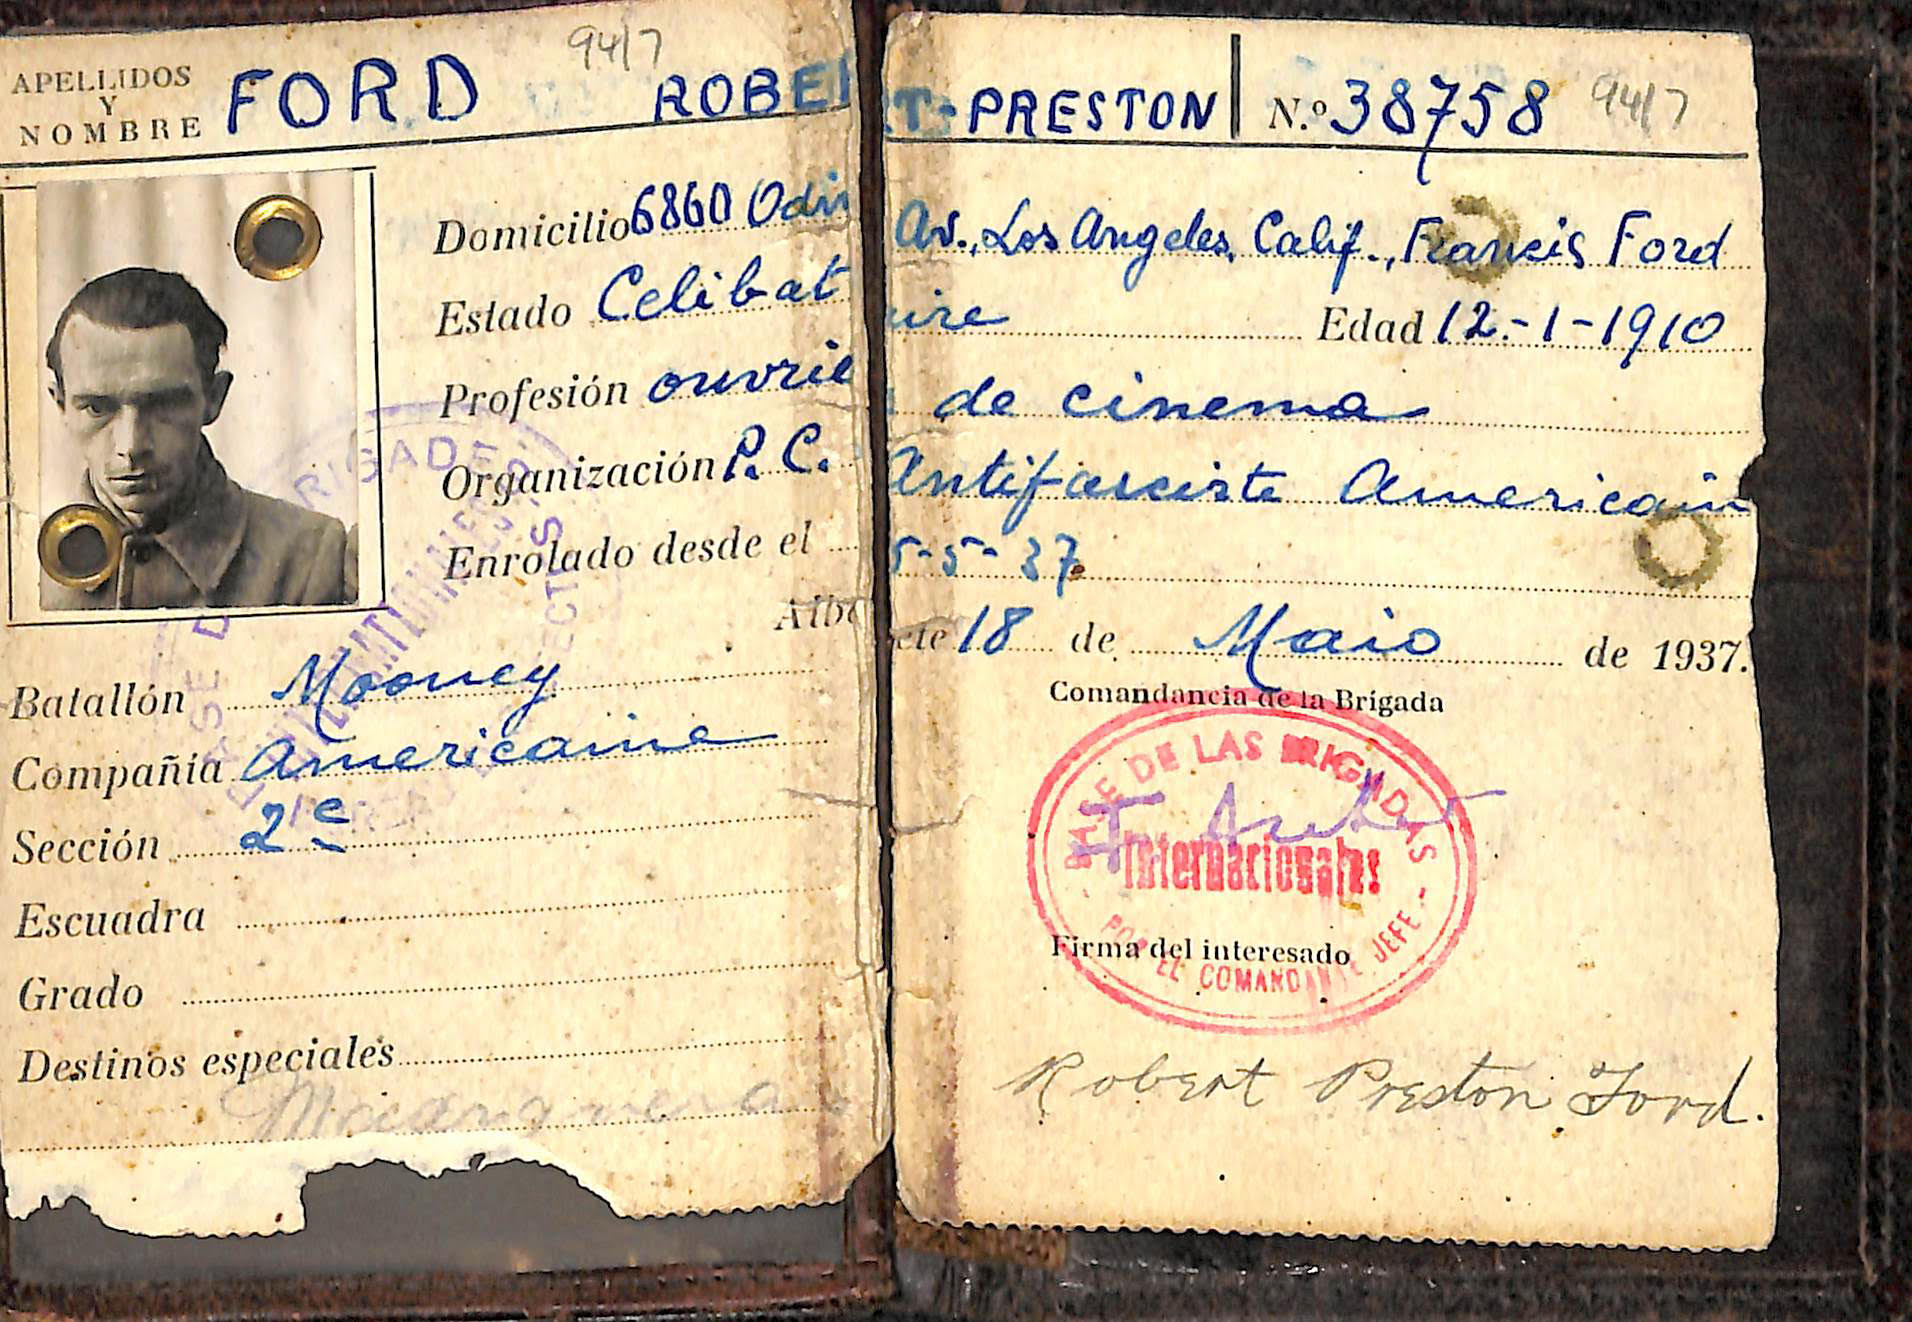 APELLIDOS Y NOMBRE FORD ROBERT-PRESTON N.º 38758
94/7 94/7
Domicilio 6860 Odin Av., Los Angeles, Calif., Francis Ford
Estado Celibataire Edad 12.-1-1910
Profesión ouvrier de cinema
Organización P. C. Antifasciste Americain
Enrolado desde el 5-5-37
Albacete 18 de Maio de 1937.
Batallón Mooney
Compañía Americaine
Sección 2e
Escuadra
Grado
Destinos especiales
Comandancia de la Brigada
BASE DE LAS BRIGADAS
Internacionales
POR EL COMANDANTE JEFE
Firma del interesado
Robert Preston Ford.